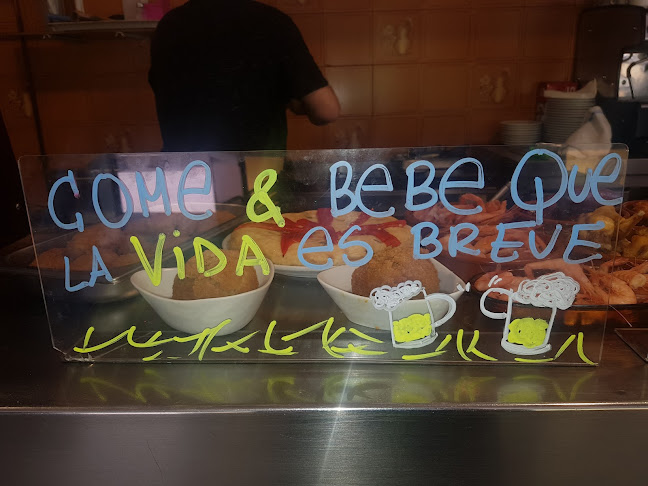 COMe & BeBe Que
LA ViDA es BREVE